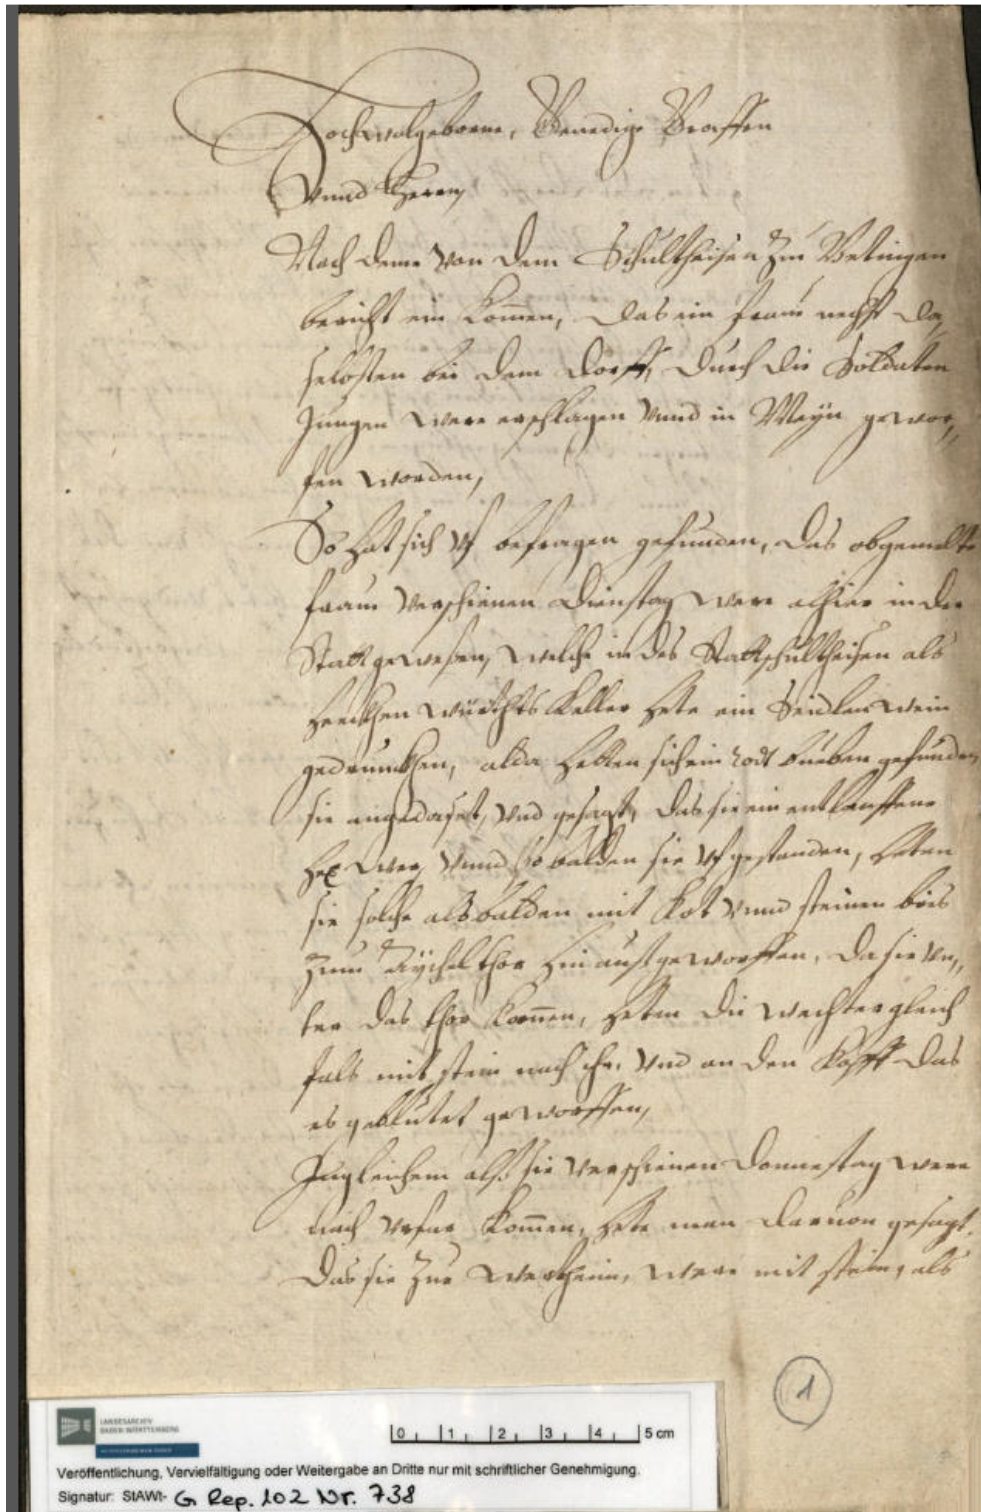 Hochwolgeborne, Genedige Graffen
Vnnd Herrn,
Nach deme von dem Schultheisen zu Vetingen
bericht ein kom̄en, das ein fraw nechst da,
selbsten bei dem dorff, durch die Soldaten
Jungen were erschlagen vnnd in Mayn gewor,,
fen worden,
So hat sich vf befragen gefunden, das obgemelte
fraw verschienen Dienstag were alhier in der
Statt gewesen, welche in des Stattschultheisen als
würthts Keller hete ein Seidlen wein
gedrunckhen, alda hetten sich ein rott bueben gefunden
sie vnd gesagt, das sie ein entlauffene
Hex wer, vnnd so balden sie vfgestanden, hetten
sie solche alsbalden mit Kot vnnd steinen bies
zum Aychelthor hinaust geworffen, da sie vn,,
ter das thor kom̄en, hetten die wechter gleich
fals mit stein nach ihr, vnd an den Kopff das
es geblutet geworffen,
Ingleichem alß sie verschienen Donnestag were
nach Vrfar kom̄en, hete man daruon gesagt,
das sie zue Wertheim, were mit stein, als
1
LANDESARCHIV
BADEN-WÜRTTEMBERG
0 1 2 3 4 5 cm
Veröffentlichung, Vervielfältigung oder Weitergabe an Dritte nur mit schriftlicher Genehmigung.
Signatur: StAWt- G Rep. 102 Nr. 738